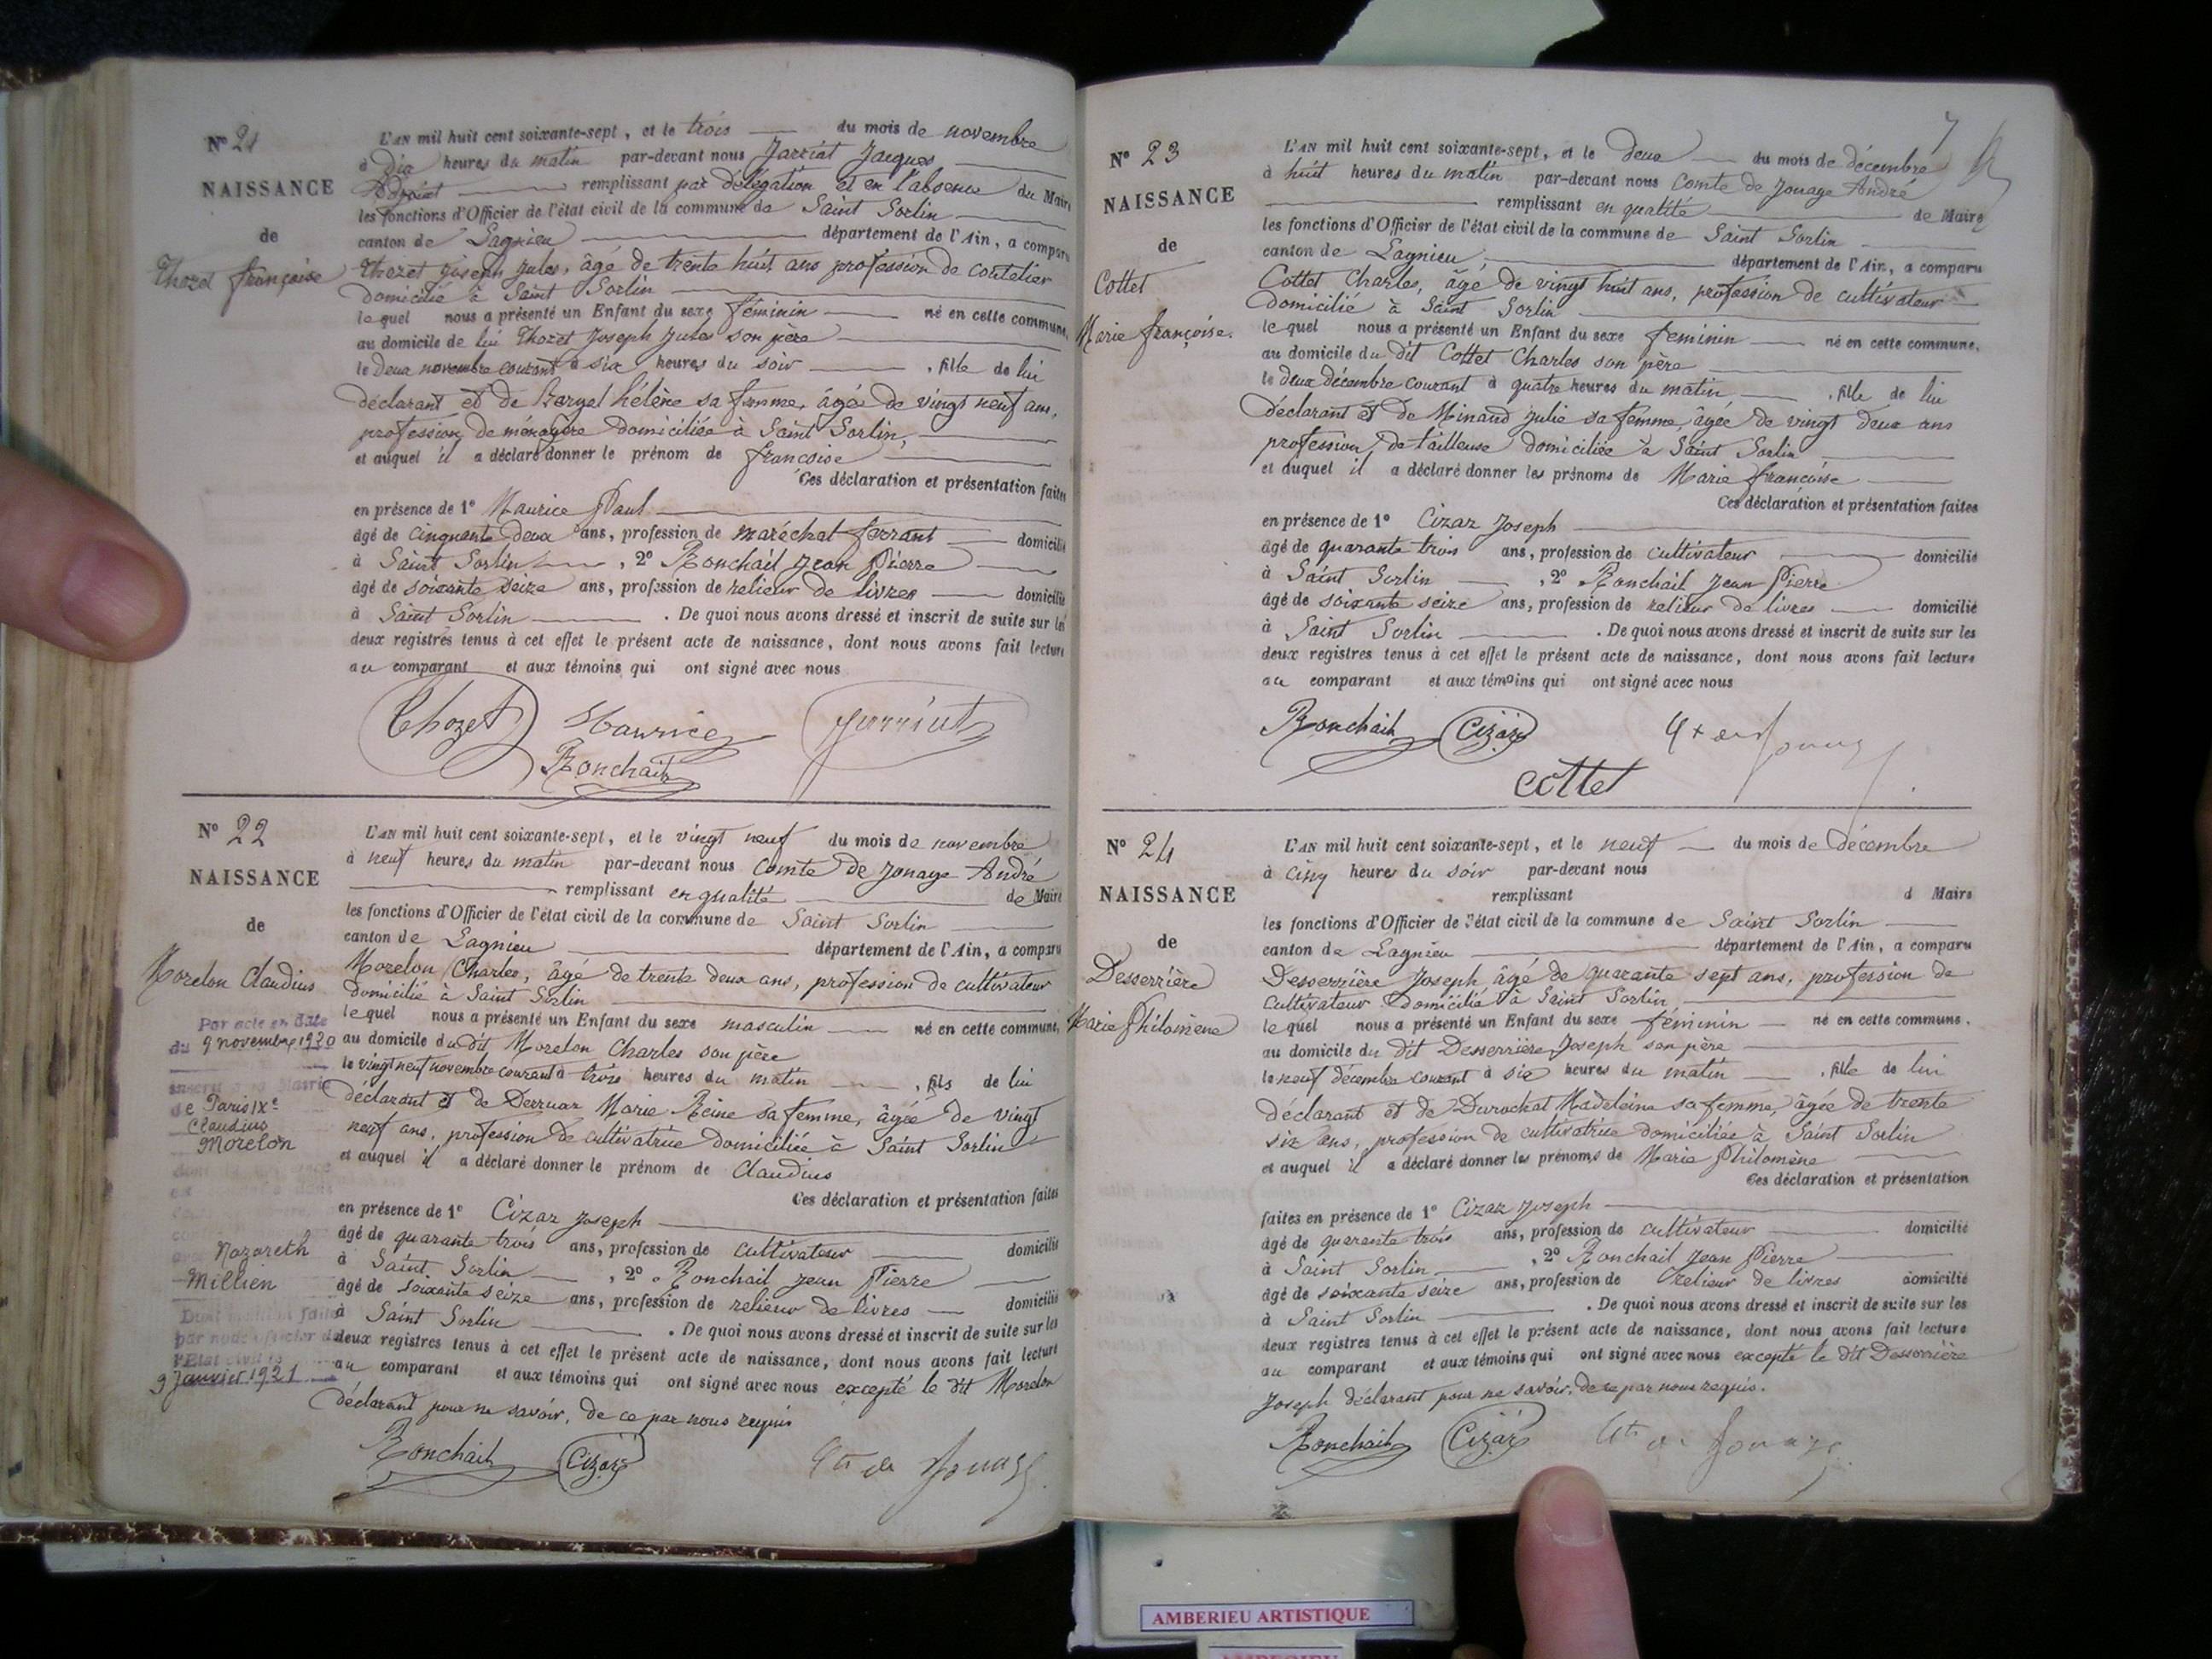 N° 21
NAISSANCE
de
Thozet françoise
L'AN mil huit cent soixante-sept, et le trois du mois de novembre
à dix heures du matin par-devant nous Jarriat Jacques
Adjoint remplissant par délégation et en l'absence du Maire
les fonctions d'Officier de l'état civil de la commune de Saint Sorlin
canton de Lagnieu département de l'Ain, a comparu
Thozet Joseph Jules, âgé de trente huit ans profession de coutelier
domicilié à Saint Sorlin
lequel nous a présenté un Enfant du sexe féminin né en cette commune,
au domicile de lui Thozet Joseph Jules son père
le deux novembre courant à six heures du soir, fille de lui
déclarant et de hélène sa femme, âgée de vingt neuf ans,
profession de ménagère domiciliée à Saint Sorlin,
et auquel il a déclaré donner le prénom de françoise
Ces déclaration et présentation faites
en présence de 1° Maurice Paul
âgé de cinquante deux ans, profession de maréchal ferrant domicilié
à Saint Sorlin, 2° Ronchail Jean Pierre
âgé de soixante seize ans, profession de relieur de livres domicilié
à Saint Sorlin. De quoi nous avons dressé et inscrit de suite sur les
deux registres tenus à cet effet le présent acte de naissance, dont nous avons fait lecture
au comparant et aux témoins qui ont signé avec nous
Thozet Maurice Jarriat
Ronchail
N° 22
NAISSANCE
de
Morelon Claudius
Par acte en date
du 9 novembre 1920
inscrit Mairie
de Paris IXe
Claudius
Morelon
Nazareth
Millien
par nous officier de
l'Etat civil
9 Janvier 1921
L'AN mil huit cent soixante-sept, et le vingt neuf du mois de novembre
à neuf heures du matin par-devant nous Comte de Jonage André
remplissant en qualité de Maire
les fonctions d'Officier de l'état civil de la commune de Saint Sorlin
canton de Lagnieu département de l'Ain, a comparu
Morelon Charles, âgé de trente deux ans, profession de cultivateur
domicilié à Saint Sorlin
lequel nous a présenté un Enfant du sexe masculin né en cette commune,
au domicile du dit Morelon Charles son père
le vingt neuf novembre courant à trois heures du matin, fils de lui
déclarant et de Derruaz Marie Reine sa femme, âgée de vingt
neuf ans, profession de cultivatrice domiciliée à Saint Sorlin
et auquel il a déclaré donner le prénom de Claudius
Ces déclaration et présentation faites
en présence de 1° Cizar Joseph
âgé de quarante trois ans, profession de cultivateur domicilié
à Saint Sorlin, 2° Ronchail Jean Pierre
âgé de soixante seize ans, profession de relieur de livres domicilié
à Saint Sorlin. De quoi nous avons dressé et inscrit de suite sur les
deux registres tenus à cet effet le présent acte de naissance, dont nous avons fait lecture
au comparant et aux témoins qui ont signé avec nous excepté le dit Morelon
déclarant pour ne savoir, de ce par nous requis
Ronchail Cizar Cte de Jonage
7
N° 23
NAISSANCE
de
Cottet
Marie françoise.
L'AN mil huit cent soixante-sept, et le deux du mois de décembre
à huit heures du matin par-devant nous Comte de Jonage André
remplissant en qualité de Maire
les fonctions d'Officier de l'état civil de la commune de Saint Sorlin
canton de Lagnieu, département de l'Ain, a comparu
Cottet Charles, âgé de vingt huit ans, profession de cultivateur
domicilié à Saint Sorlin
lequel nous a présenté un Enfant du sexe feminin né en cette commune.
au domicile du dit Cottet Charles son père
le deux décembre courant à quatre heures du matin, fille de lui
déclarant et de Minaud Julie sa femme, âgée de vingt deux ans
profession de tailleuse domiciliée à Saint Sorlin
et auquel il a déclaré donner les prénoms de Marie françoise
Ces déclaration et présentation faites
en présence de 1° Cizar Joseph
âgé de quarante trois ans, profession de cultivateur domicilié
à Saint Sorlin, 2° Ronchail Jean Pierre
âgé de soixante seize ans, profession de relieur de livres domicilié
à Saint Sorlin. De quoi nous avons dressé et inscrit de suite sur les
deux registres tenus à cet effet le présent acte de naissance, dont nous avons fait lecture
au comparant et aux témoins qui ont signé avec nous
Ronchail Cizar Cte de Jonage
Cottet
N° 24
NAISSANCE
de
Desserrière
Marie Philomène
L'AN mil huit cent soixante-sept, et le neuf du mois de décembre
à cinq heures du soir par-devant nous
remplissant d Maire
les fonctions d'Officier de l'état civil de la commune de Saint Sorlin
canton de Lagnieu département de l'Ain, a comparu
Desserrière Joseph âgé de quarante sept ans, profession de
cultivateur domicilié à Saint Sorlin
lequel nous a présenté un Enfant du sexe féminin né en cette commune.
au domicile du dit Desserrière Joseph son père
le neuf décembre courant à six heures du matin, fille de lui
déclarant et de Durochat Madeleine sa femme, âgée de trente
six ans, profession de cultivatrice domiciliée à Saint Sorlin
et auquel il a déclaré donner les prénoms de Marie Philomène
Ces déclaration et présentation
faites en présence de 1° Cizar Joseph
âgé de quarante trois ans, profession de cultivateur domicilié
à Saint Sorlin, 2° Ronchail Jean Pierre
âgé de soixante seize ans, profession de relieur de livres domicilié
à Saint Sorlin. De quoi nous avons dressé et inscrit de suite sur les
deux registres tenus à cet effet le présent acte de naissance, dont nous avons fait lecture
au comparant et aux témoins qui ont signé avec nous excepté le dit Desserrière
Joseph déclarant pour ne savoir, de ce par nous requis.
Ronchail Cizar Cte de Jonage
AMBERIEU ARTISTIQUE
AMBERIEU